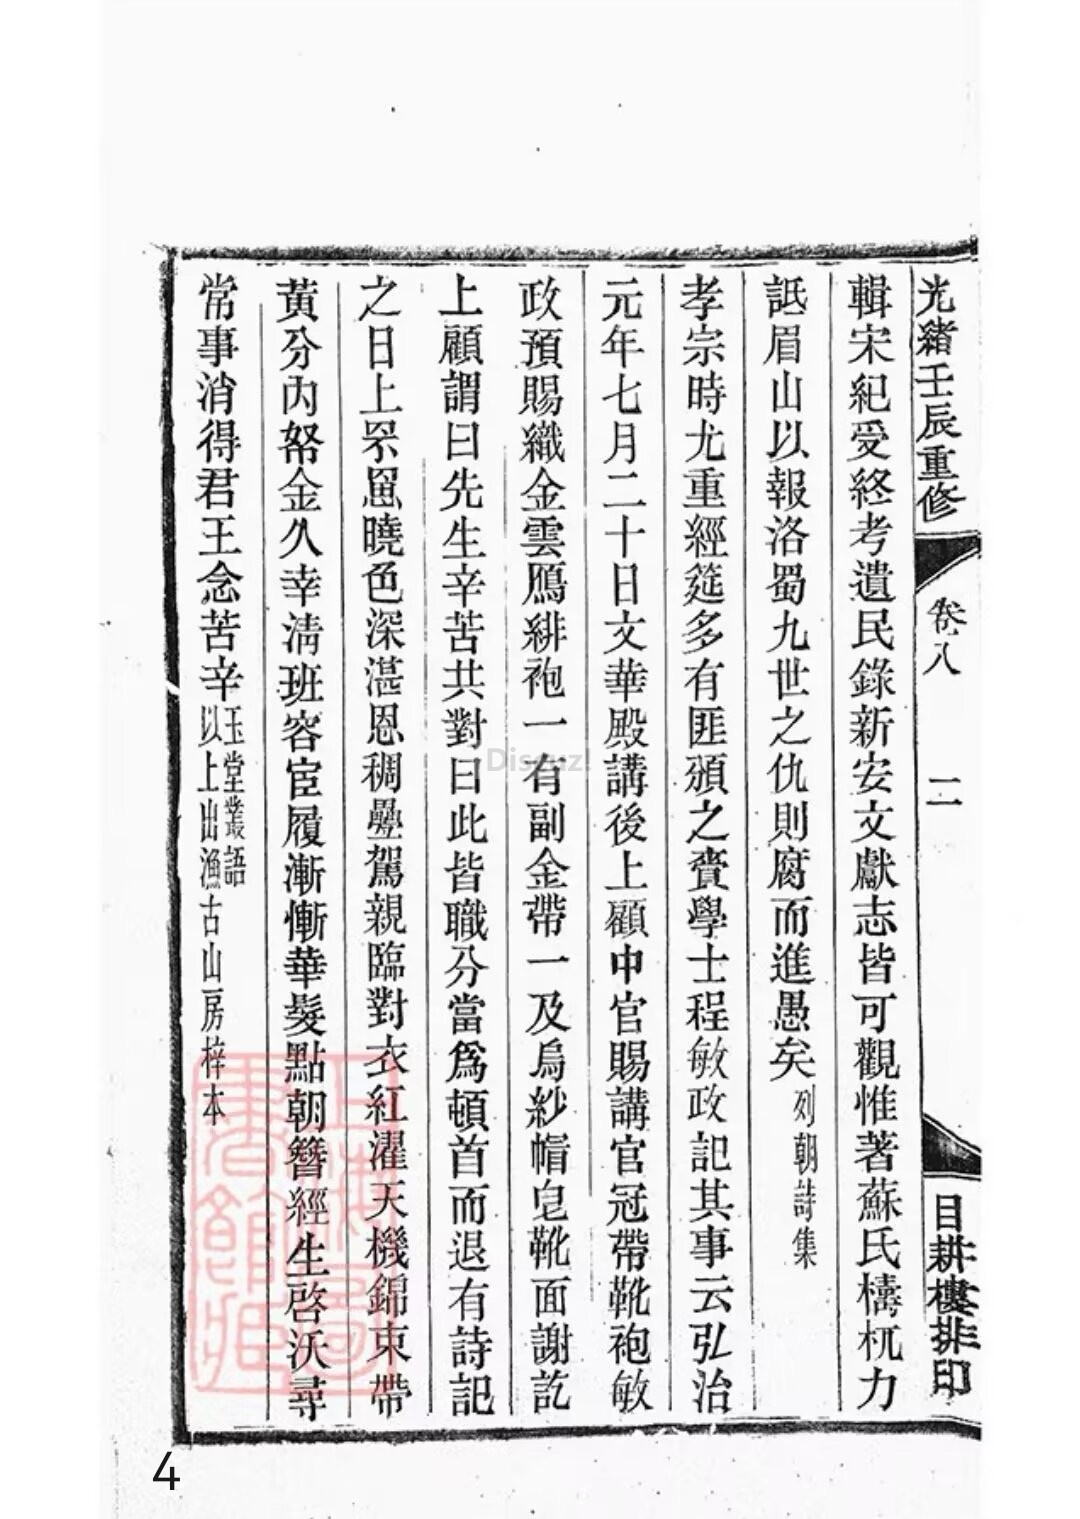 光緒壬辰重修
卷八
二
目耕樓排印
輯宋紀受終考遺民錄新安文獻志皆可觀惟著蘇氏檮杌力
詆眉山以報洛蜀九世之仇則腐而進愚矣列朝詩集
孝宗時尤重經筵多有匪頒之賚學士程敏政記其事云弘治
元年七月二十日文華殿講後上顧中官賜講官冠帶靴袍敏
政預賜織金雲鴈緋袍一有副金帶一及烏紗帽皂靴面謝訖
上顧謂曰先生辛苦共對曰此皆職分當爲頓首而退有詩記
之日上罘罳曉色深湛恩稠疊駕親臨對衣紅濯天機錦束帶
黃分內帑金久幸淸班容宦履漸慚華髮點朝簪經生啓沃尋
常事消得君王念苦辛玉堂叢語
以上出漁古山房梓本
上海圖書館藏
Discuz!
4